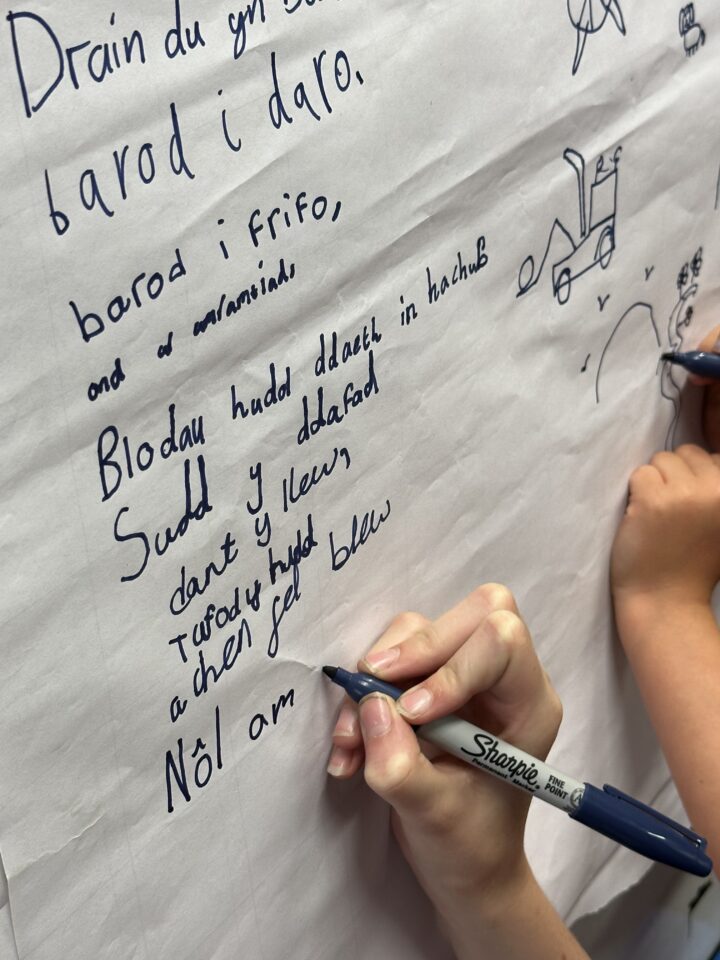 Drain du yn
barod i daro.
barod i frifo,
ond
Blodau hudd ddaeth in
Sudd y ddafad
dant y llew,
a chen gel blew
Nôl am
Sharpie
Permanent Marker
FINE
POINT